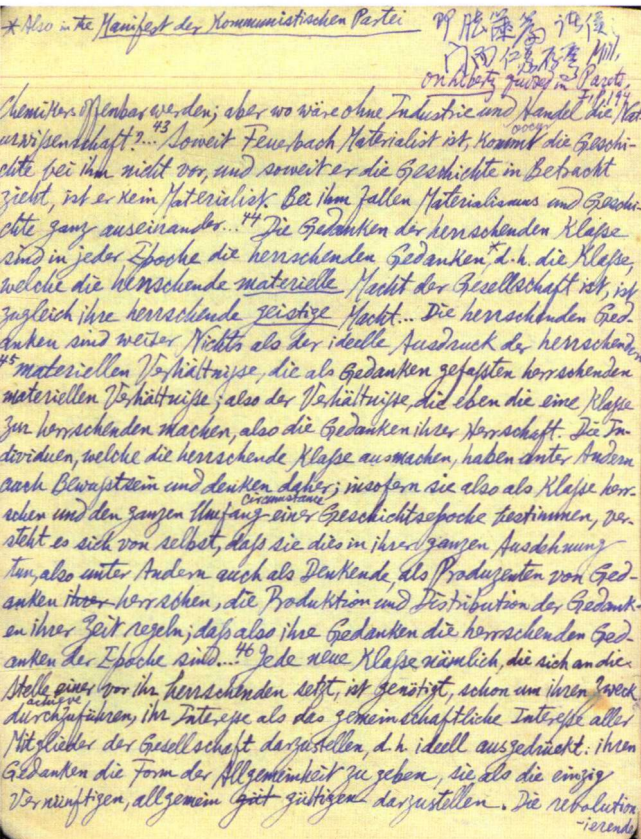 * Also in the Manifest der Kommunistischen Partei
Mill,
On Liberty quoted in Pareto,
Chemikers offenbar werden; aber wo wäre ohne Industrie und Handel die Nat-
urwißenschaft?...43 Soweit Feuerbach Materialist ist, kommt die Geschi-
occur
chte bei ihm nicht vor, und soweit er die Geschichte in Betracht
zieht, ist er kein Materialist. Bei ihm fallen Materialismus und Geschi-
chte ganz auseinander...44 Die Gedanken der herrschenden Klaße
sind in jeder Epoche die herrschenden Gedanken,* d.h. die Klaße,
welche die herrschende materielle Macht der Gesellschaft ist, ist
zugleich ihre herrschende geistige Macht... Die herrschenden Ged-
anken sind weiter Nichts als der ideelle Ausdruck der herrschenden
45 materiellen Verhältniße, die als Gedanken gefaßten herrschenden
materiellen Verhältniße; also der Verhältniße, die eben die eine Klaße
zur herrschenden machen, also die Gedanken ihrer Herrschaft. Die In-
dividuen, welche die herrschende Klaße ausmachen, haben unter Andern
auch Bewußtsein und denken daher; insofern sie also als Klaße herr-
circumstance
schen und den ganzen Umfang einer Geschichtsepoche bestimmen, ver-
steht es sich von selbst, daß sie dies in ihrer ganzen Ausdehnung
tun, also unter Andern auch als Denkende, als Produzenten von Ged-
anken ihrer herrschen, die Produktion und Distribution der Gedank-
en ihrer Zeit regeln; daß also ihre Gedanken die herrschenden Ged-
anken der Epoche sind....46 Jede neue Klaße nämlich, die sich an die
Stelle einer vor ihr herrschenden setzt, ist genötigt, schon um ihren Zweck
achieve
durchzuführen, ihr Intereße als das gemeinschaftliche Intereße aller
Mitglieder der Gesellschaft darzustellen, d.h. ideell ausgedrückt: ihren
Gedanken die Form der Allgemeinheit zu geben, sie als die einzig
vernünftigen, allgemein gült gültigen darzustellen. Die revolution-
-ierende